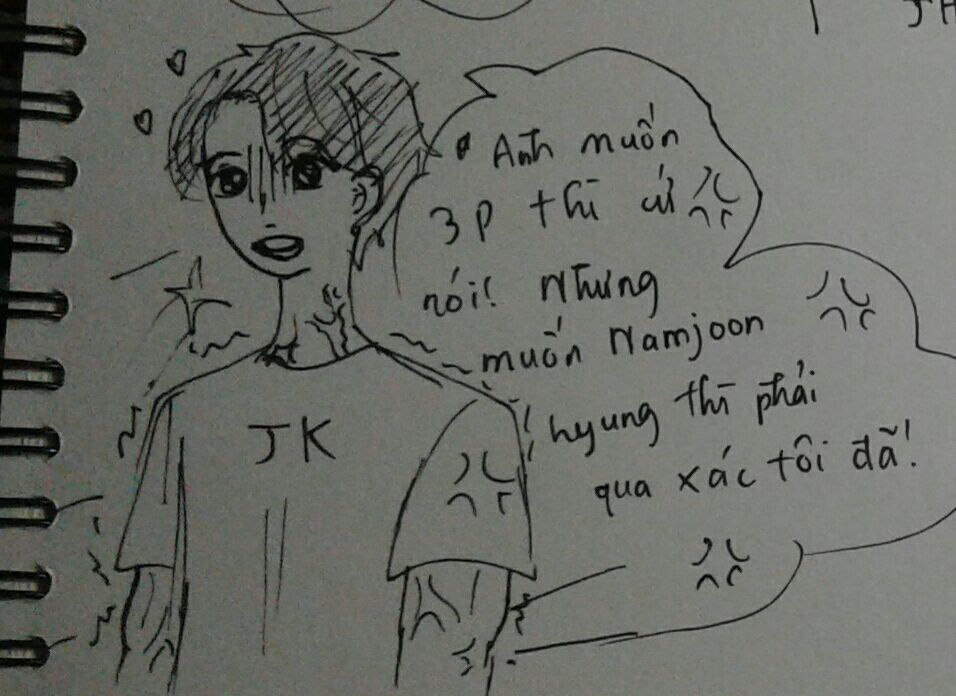 JH
Anh muốn
3P thì cứ
nói! Nhưng
muốn Namjoon
hyung thì phải
qua xác tôi đã!
JK